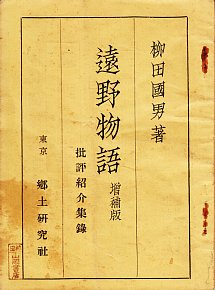 柳田國男著
遠野物語
増補版
批評紹介集錄
東京
鄕土研究社